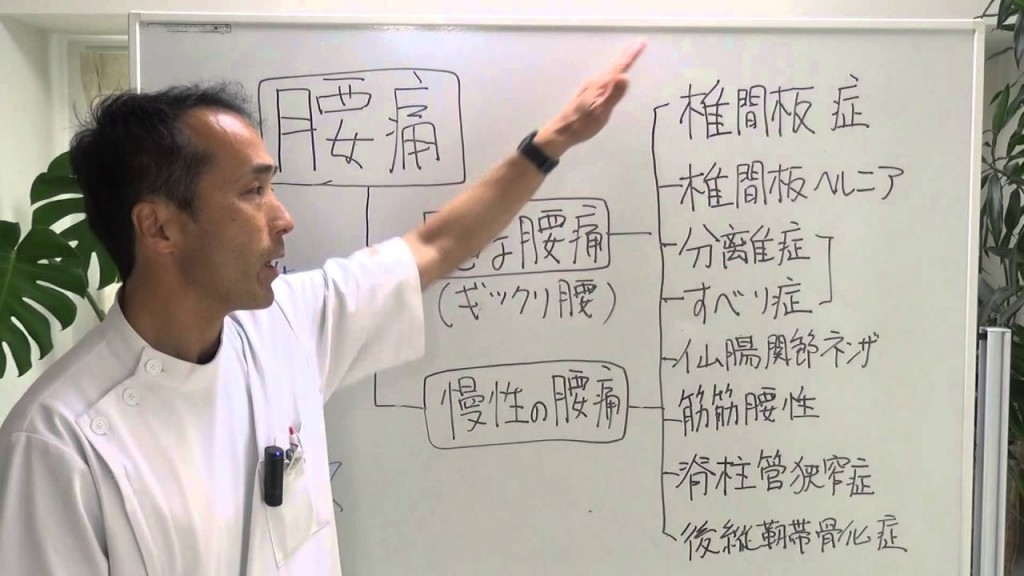 腰痛
な腰痛
(ギックリ腰)
慢性の腰痛
椎間板症
椎間板ヘルニア
分離症
すべり症
仙腸関節ネンザ
筋筋腰性
脊柱管狭窄症
後縦靭帯骨化症